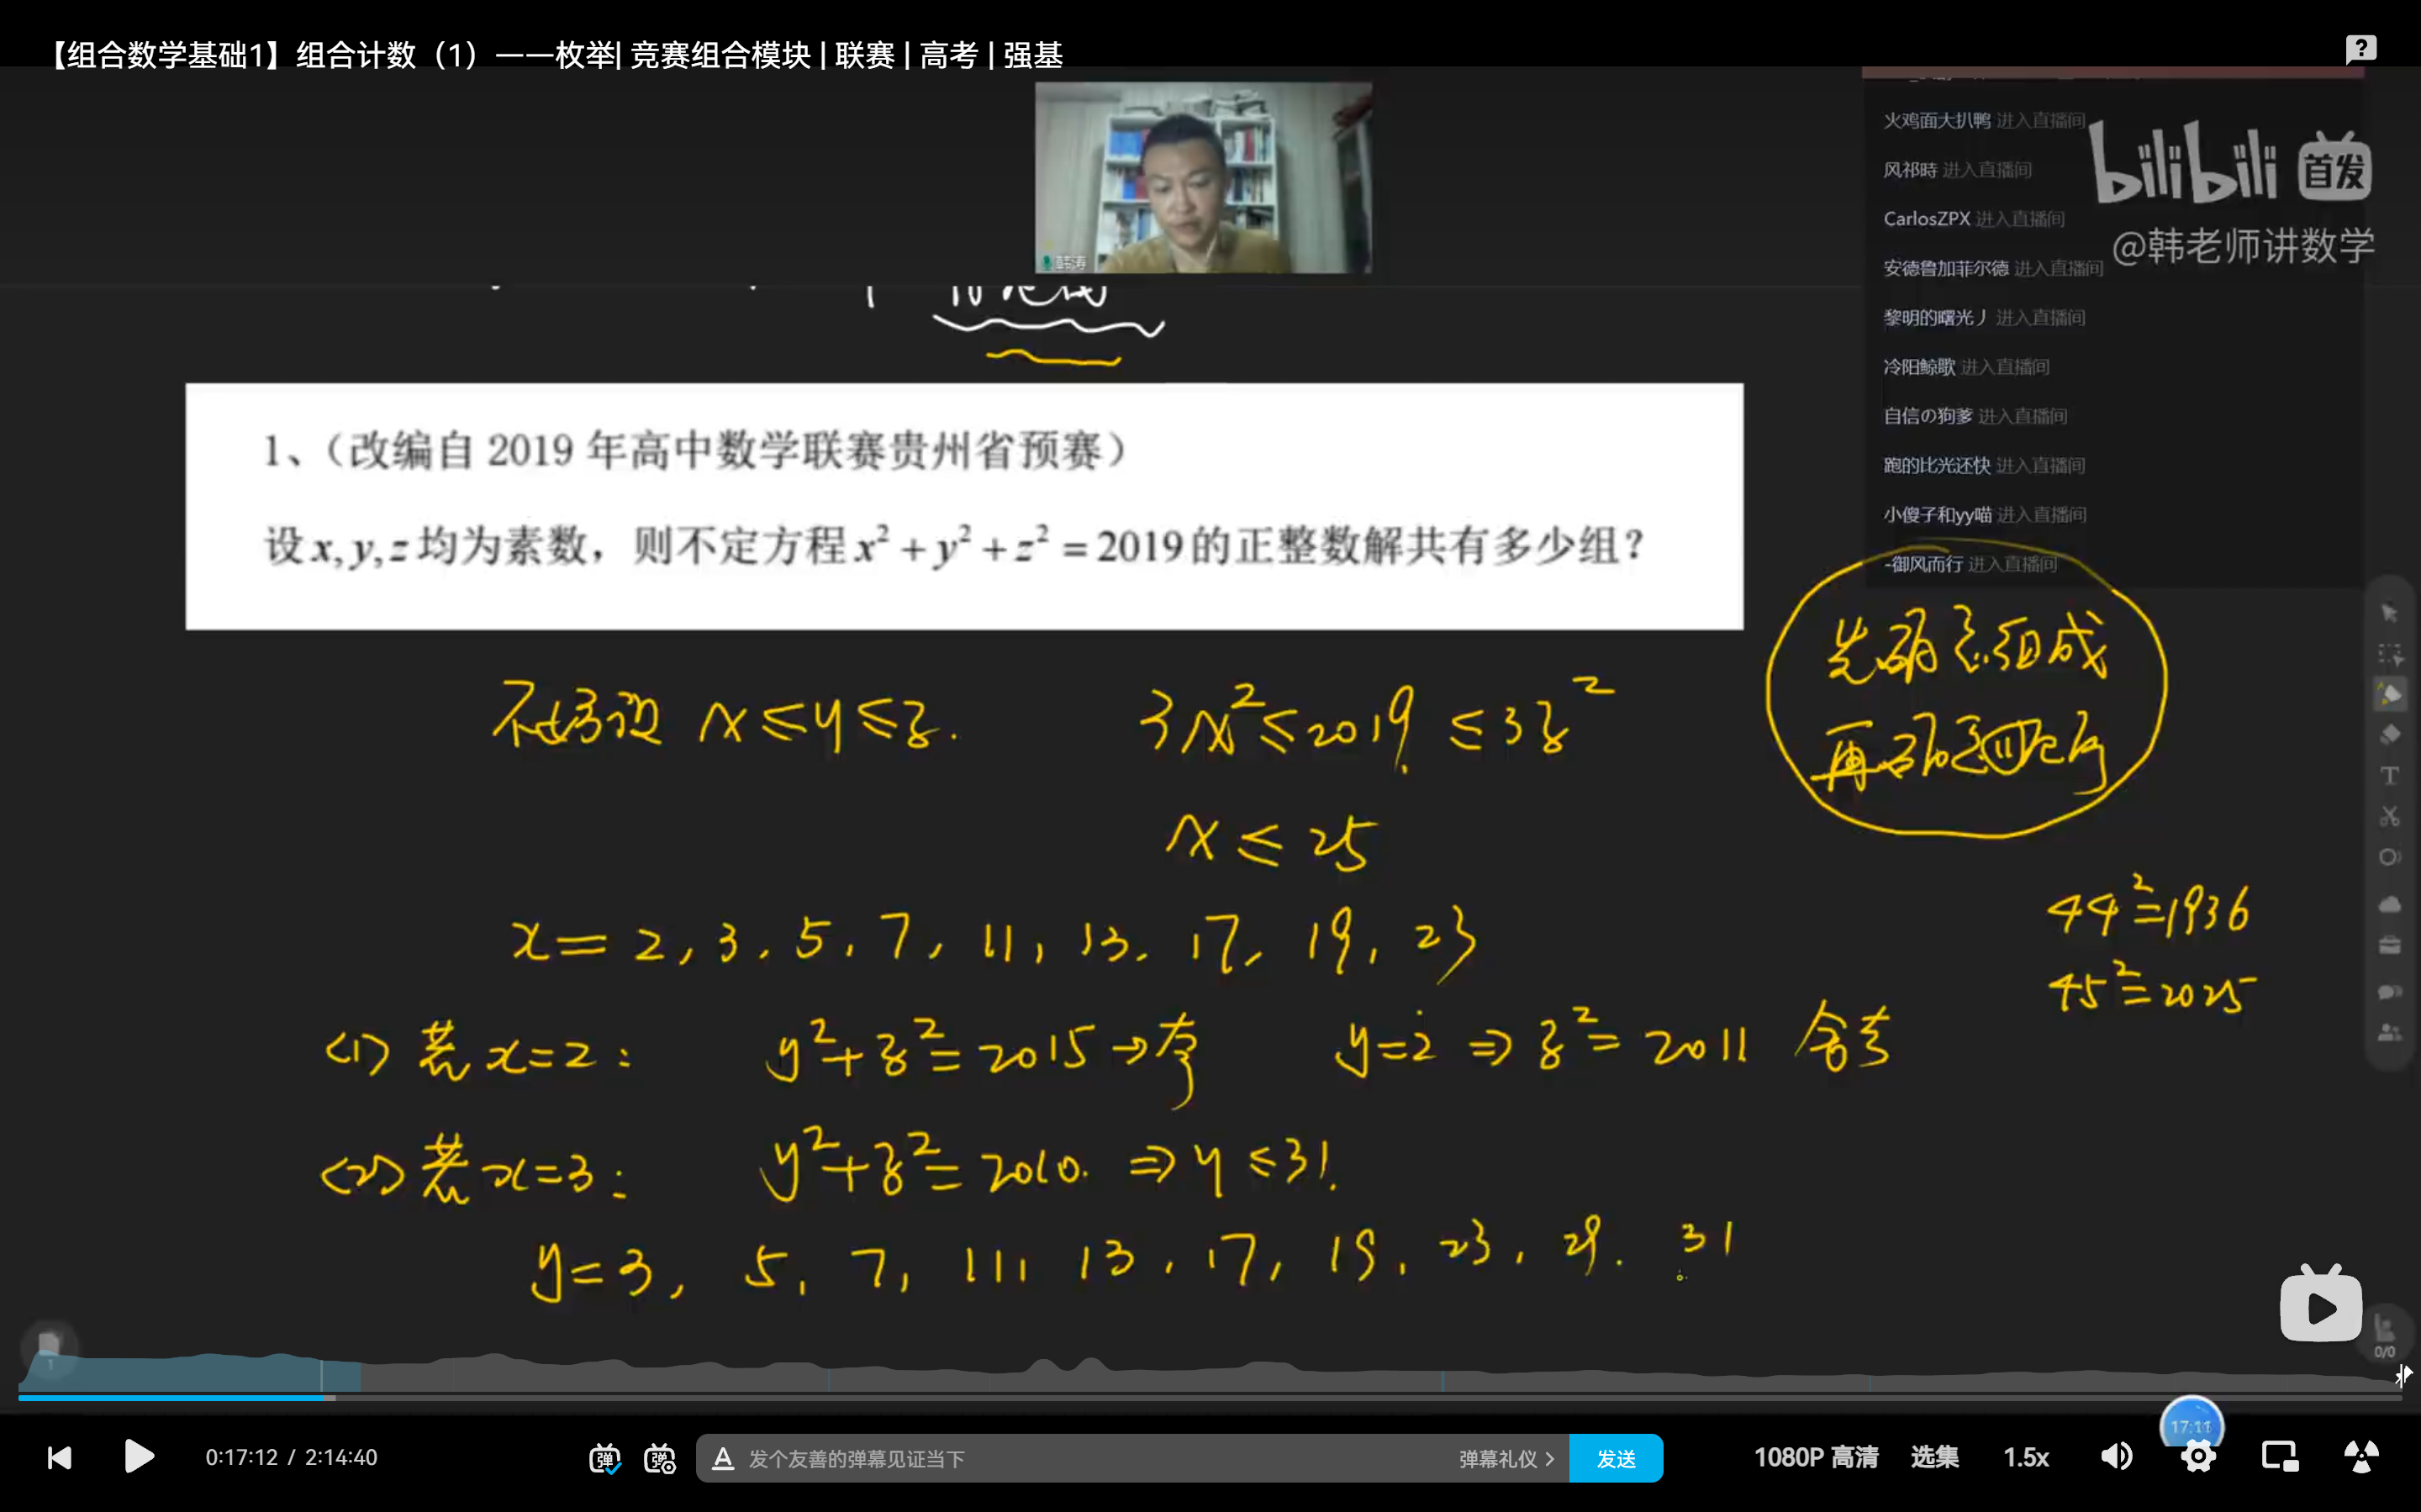 【组合数学基础1】组合计数（1）——枚举| 竞赛组合模块 | 联赛 | 高考 | 强基
火鸡面大扒鸭 进入直播间
风祁時 进入直播间
CarlosZPX 进入直播间
安德鲁加菲尔德 进入直播间
黎明的曙光丿 进入直播间
冷阳鲸歌 进入直播间
自信の狗爹 进入直播间
跑的比光还快 进入直播间
小傻子和yy喵 进入直播间
-御风而行 进入直播间
bilibili 首发
@韩老师讲数学
韩涛
1、（改编自 2019 年高中数学联赛贵州省预赛）
设 x, y, z 均为素数，则不定方程 x² + y² + z² = 2019 的正整数解共有多少组？
先确定组成
再确定顺序
不妨设 x ≤ y ≤ z.
3x² ≤ 2019 ≤ 3z²
x ≤ 25
x = 2, 3, 5, 7, 11, 13, 17, 19, 23
44² = 1936
45² = 2025
(1) 若 x=2 : y²+z²=2015 → 奇 y=2 ⇒ z²=2011 舍去
(2) 若 x=3 : y²+z²=2010. ⇒ y ≤ 31.
y=3, 5, 7, 11, 13, 17, 19, 23, 29. 31
1
0/0
17:11
0:17:12 / 2:14:40
弹
弹
A 发个友善的弹幕见证当下
弹幕礼仪 >
发送
1080P 高清
选集
1.5x